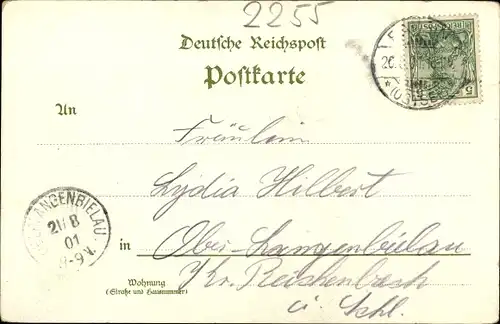 2255
Deutsche Reichspost
Postkarte
An
Fräulein
Lydia Hilbert
in Ober Langenbielau
Kr. Reichenbach
u. Schl.
Wohnung
(Straße und Hausnummer)
LANGENBIELAU
21/8
01
8-9N.
5